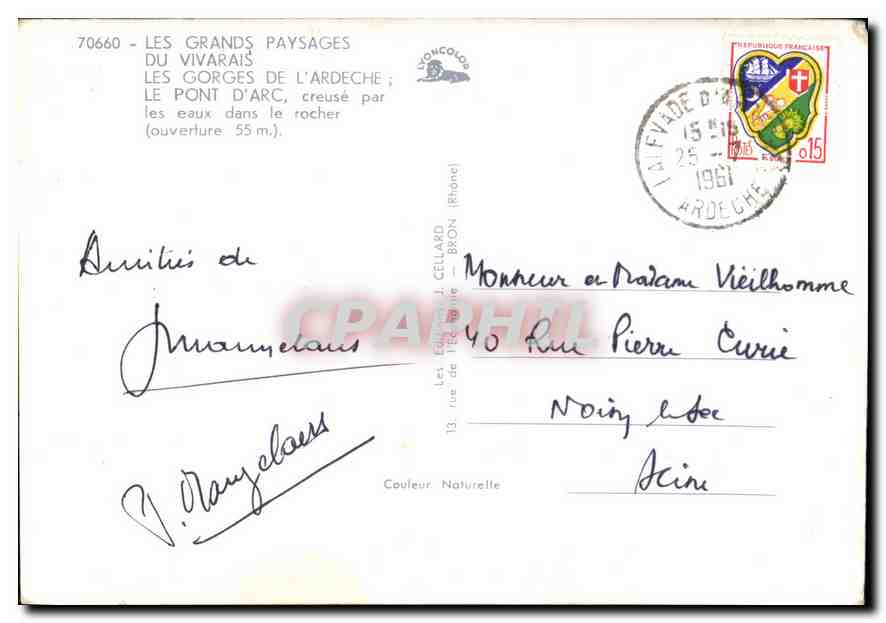 70660 - LES GRANDS PAYSAGES
DU VIVARAIS
LES GORGES DE L'ARDECHE ;
LE PONT D'ARC, creusé par
les eaux dans le rocher
(ouverture 55 m.).
LYONCOLOR
REPUBLIQUE FRANÇAISE
0,15
15 H 15
25 -
1961
ARDECHE
Amitiés de
Les Editions J. CELLARD
13, rue de l'Economie - BRON (Rhône)
CPAPHIL
Monsieur et Madame Vieilhomme
40 Rue Pierre Curie
Noisy le Sec
Seine
Couleur Naturelle